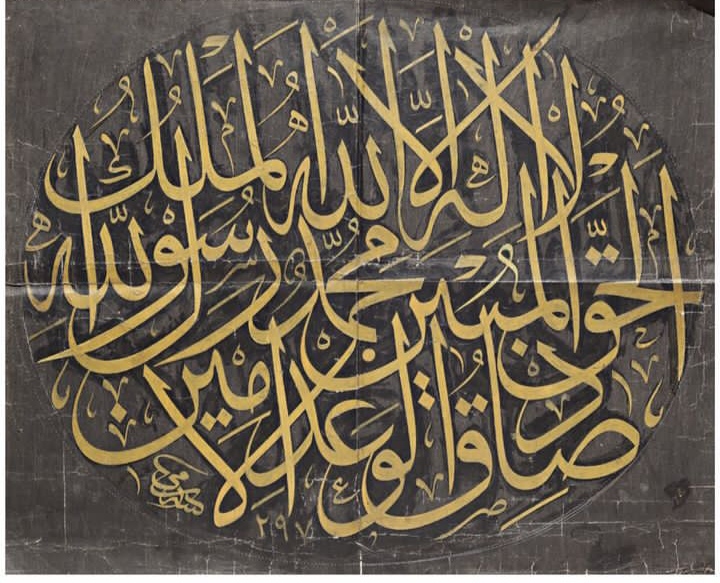 لا اله الا الله الملك
الحق المبين محمد رسول الله
صادق الوعد الامين
سامي
١٢٩٧